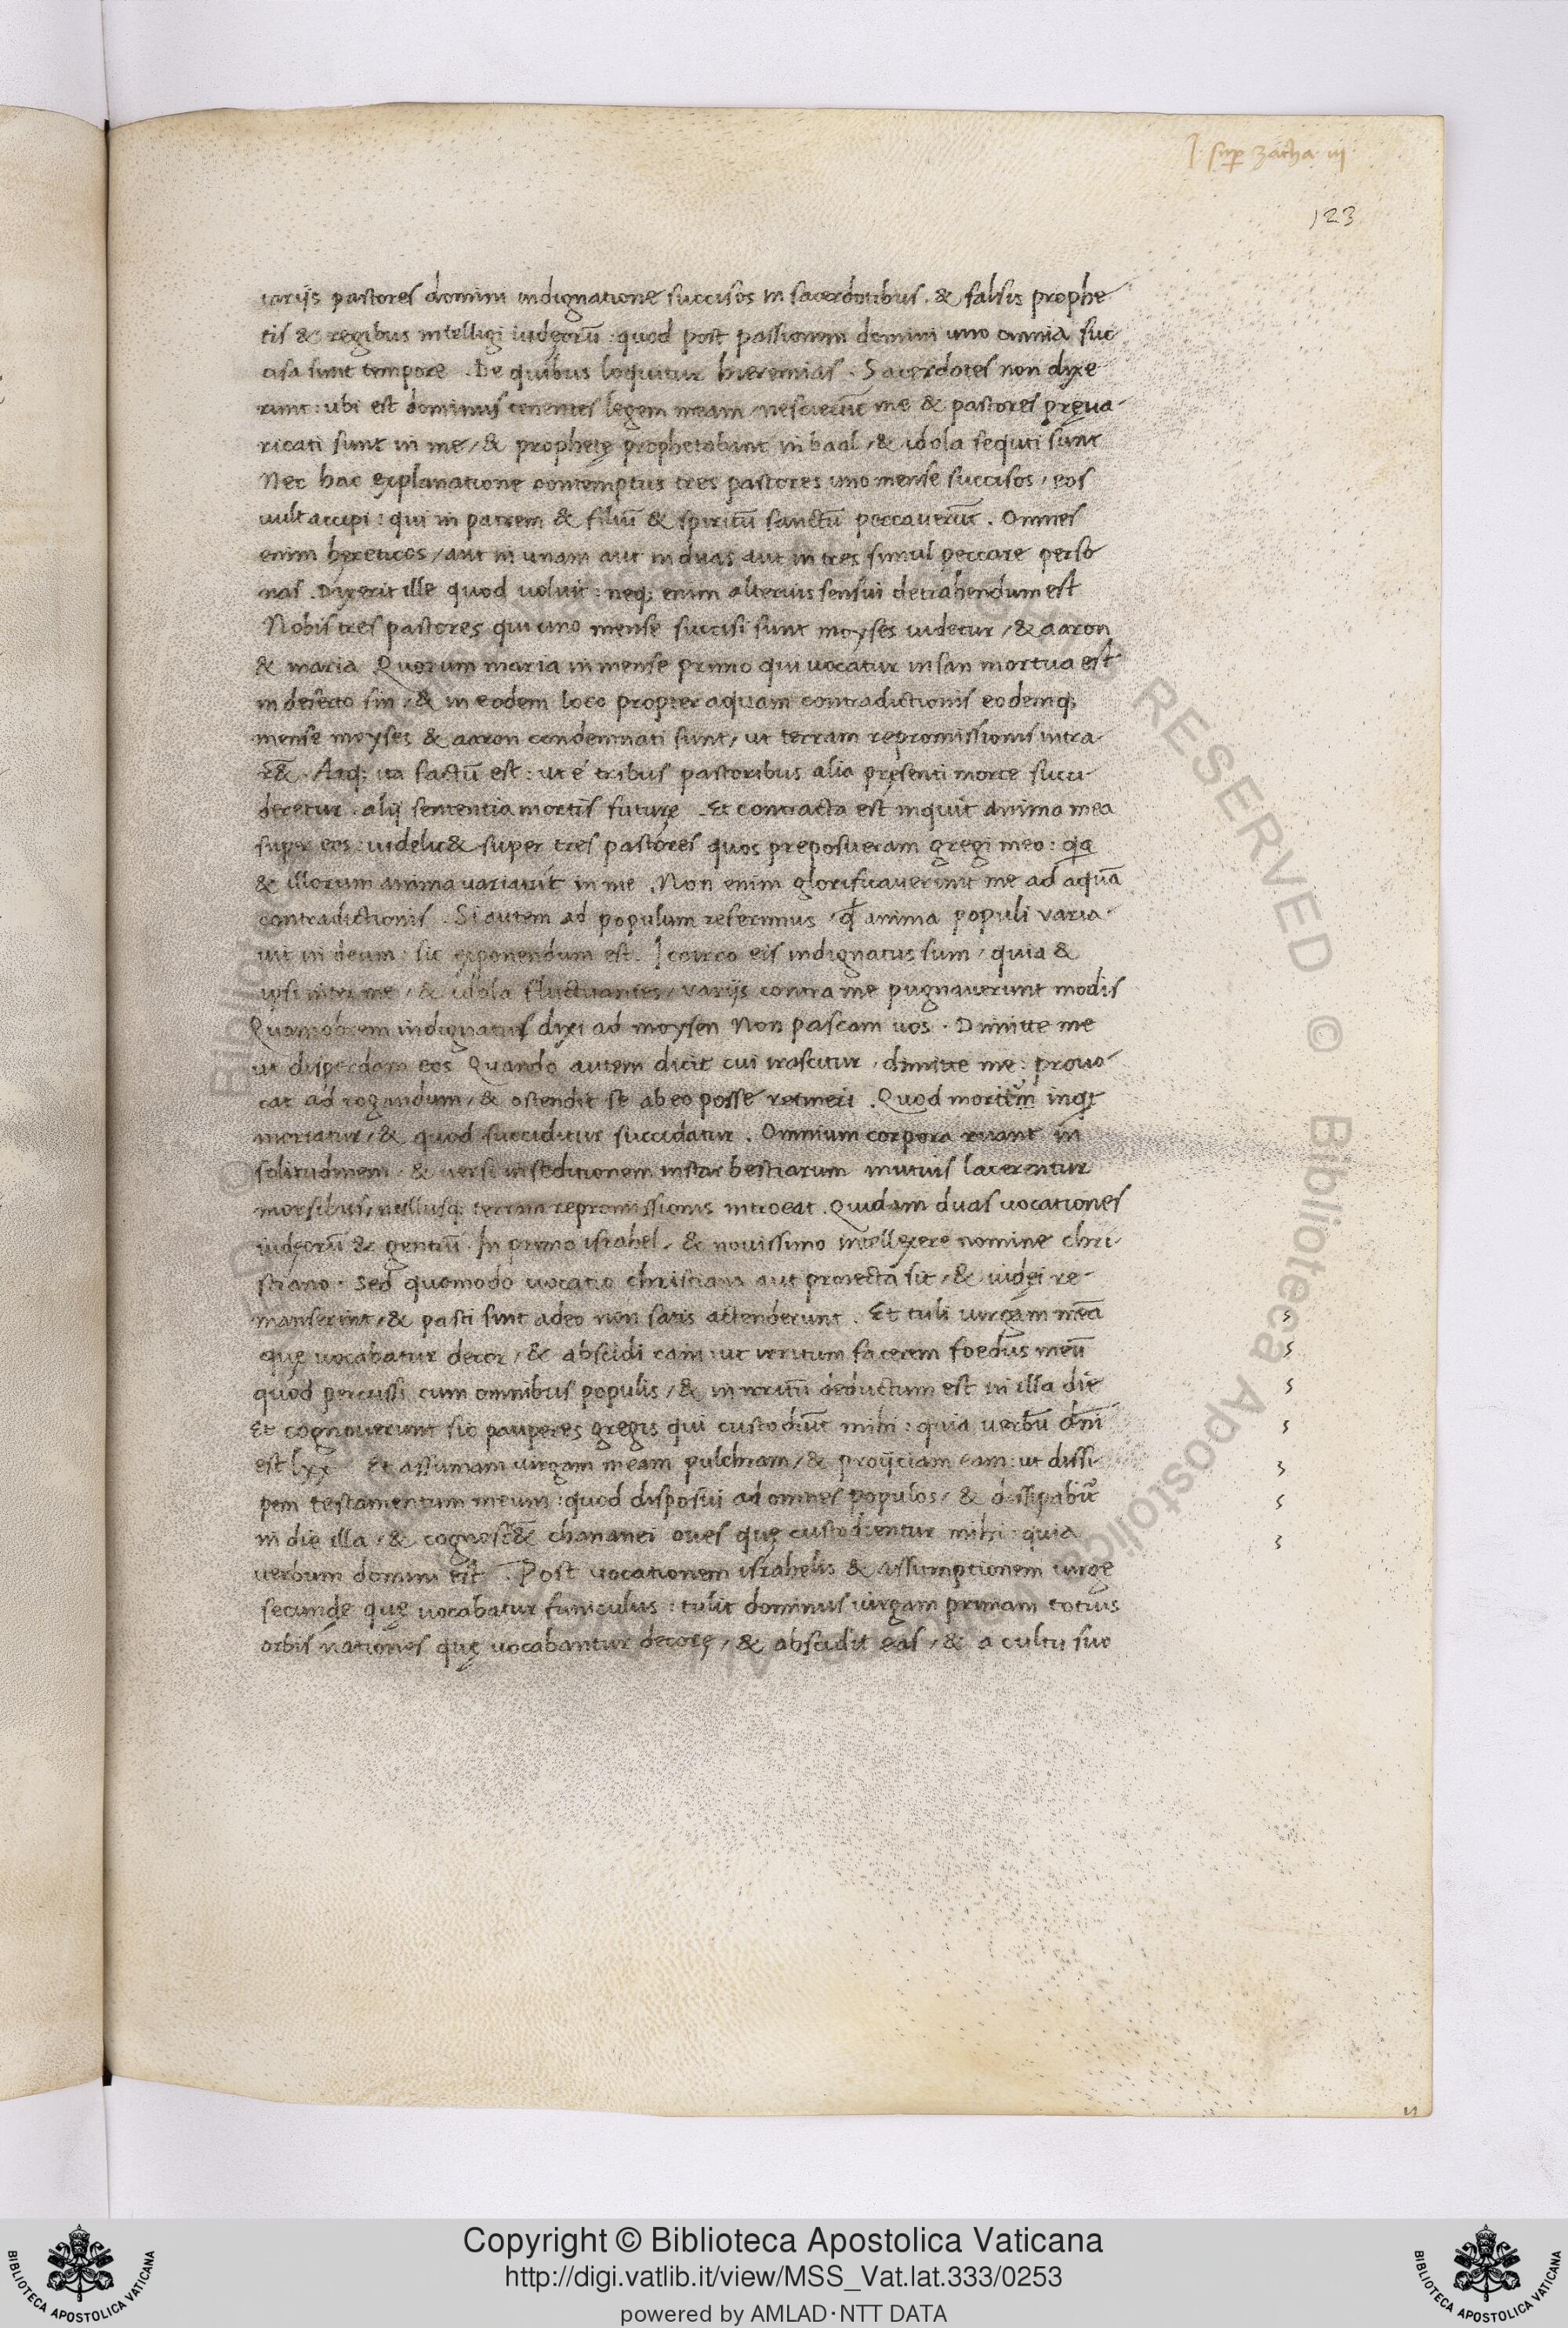 I sup zacha iij
123
iarijs pastores domini indignatione succisos in sacerdotibus. & falsis prophe
tis & regibus intelligi iudęorū: quod post passionem domini uno omnia suc
cisa sunt tempore. De quibus loquitur hieremias. Sacerdotes non dixe
runt: ubi est dominus tenentes legem meam / nescierūt me & pastores pręua-
ricati sunt in me / & prophetę prophetabant in baal / & idola sequti sunt
Nec hac explanatione contemptus tres pastores uno mense succisos / eos
uult accipi: qui in patrem & filiū & spiritū sanctū peccauerūt. Omnes
enim hereticos / aut in unam aut in duas aut in tres simul peccare perso
nas. Dixerit ille quod uoluit: neq; enim alterius sensui detrahendum est
Nobis tres pastores qui uno mense succisi sunt moyses uidetur / & aaron
& maria Quorum maria in mense primo qui uocatur insan mortua est
in deserto sin / & in eodem loco propter aquam contradictionis eodemq;
mense moyses & aaron condemnati sunt / ut terram repromissionis intra-
r& . Atq; ita factū est: ut e tribus pastoribus alia pręsenti morte succi-
deretur. alij sententia mortis futurę. Et contracta est inquit anima mea
super eos: uidelic& super tres pastores quos preposueram gregi meo: q̄a
& illorum anima uariauit in me. Non enim glorificauerunt me ad aquā
contradictionis. Si autem ad populum referimus. qđ anima populi varia-
uit in deum: sic exponendum est. Icirco eis indignatus sum / quia &
ipsi inter me / & idola fluctuantes / varijs contra me pugnauerunt modis
Quamobrem indignatus dixi ad moysen Non pascam uos. Dimitte me
ut disperdam eos Quando autem dicit cui irascitur. dimitte me: prouo-
cat ad rogandum / & ostendit se ab eo posse retineri. Quod moritur inqt
moriatur / & quod succiditur succidatur. Omnium corpora ruant in
solitudinem. & uersi in seditionem instar bestiarum mutuis lacerentur
morsibus / nullusq; terram repromissionis introeat. Quidam duas uocationes
iudęorū & gentiū. In primo israhel. & nouissimo intellexere nomine chri-
stiano. Sed quomodo uocatio christiana aut proiecta sit / & iudęi re-
manserint / & pasti sint adeo non satis attenderunt. Et tuli uirgam meā
quę uocabatur decor / & abscidi eam: ut irritum facerem foedus meū
quod percussi cum omnibus populis / & in irritū deductum est in illa die
Et cognouerunt sic pauperes gregis qui custodiūt mihi: quia uerbū dn̄i
est lxx Et assumam uirgam meam pulchram / & proijciam eam: ut dissi-
pem testamentum meum: quod disposui ad omnes populos / & dissipabit̄
in die illa / & cognosc̄& chananei oues quę custodientur mihi: quia
uerbum domini est. Post uocationem israhelis & assumptionem uirgę
secundę quę uocabatur funiculus: tulit dominus uirgam primam totius
orbis nationes quę uocabantur decorę / & abscidit eas / & a cultu suo
Copyright © Biblioteca Apostolica Vaticana
http://digi.vatlib.it/view/MSS_Vat.lat.333/0253
powered by AMLAD·NTT DATA
BIBLIOTECA APOSTOLICA VATICANA
BIBLIOTECA APOSTOLICA VATICANA